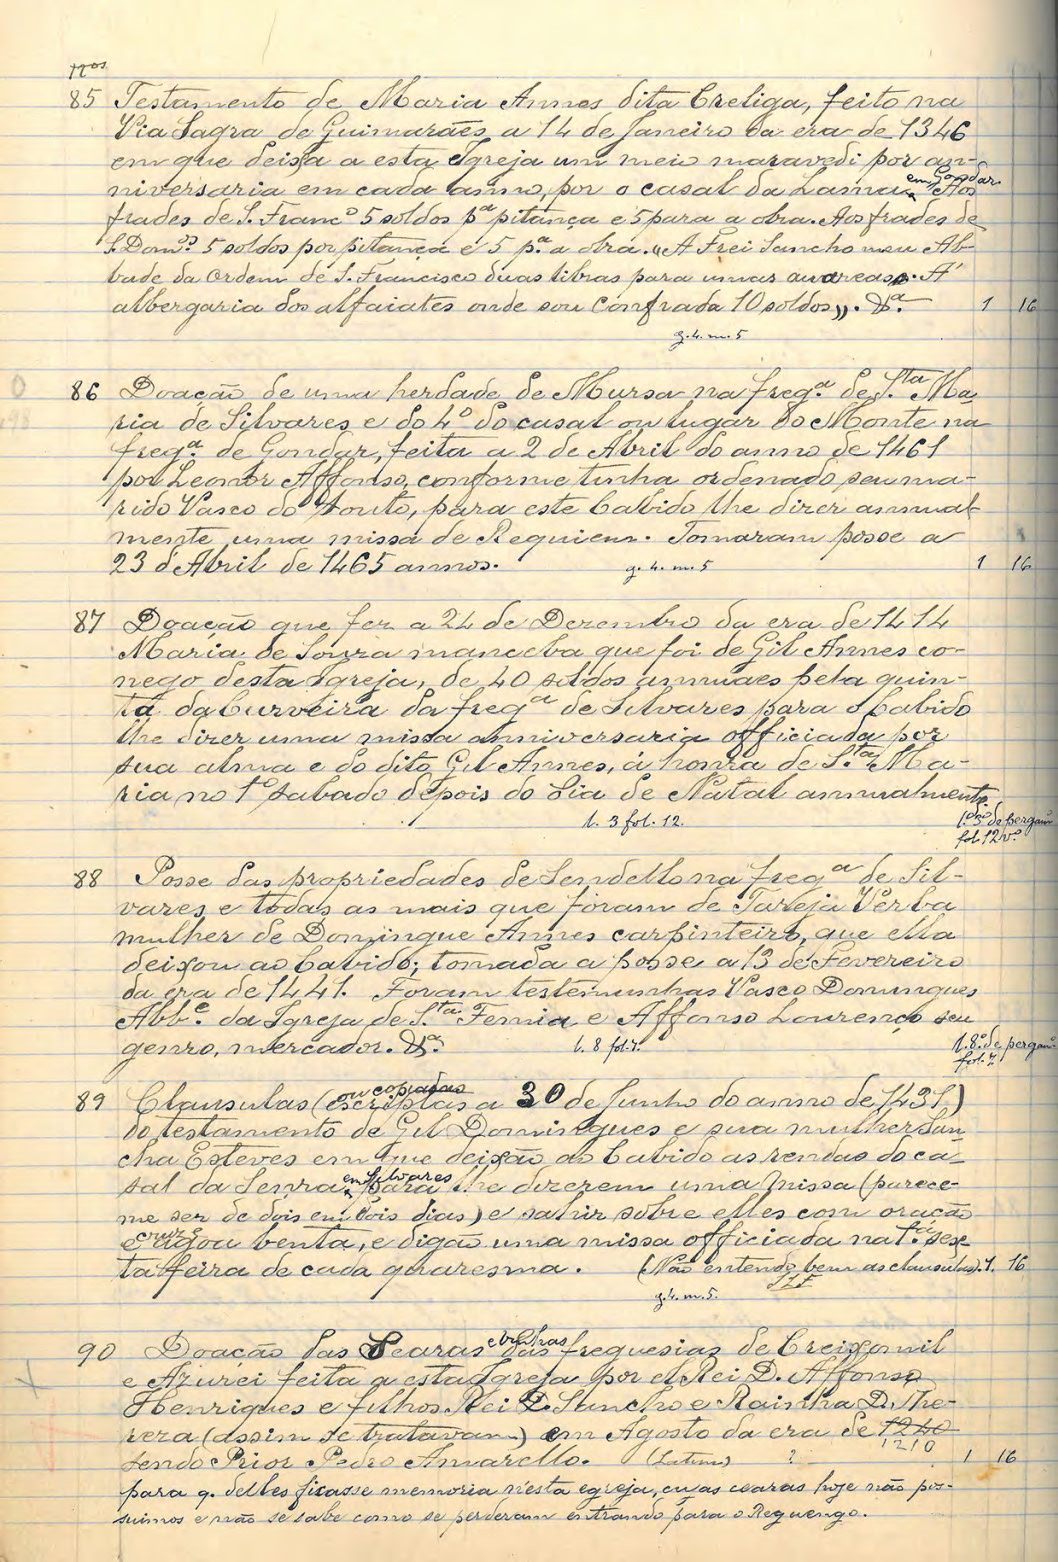 Nos
85 Testamento de Maria Annes dita Creliga, feito na
Via Sagra de Guimarães, a 14 de Janeiro da era de 1346
em que deixa a esta Igreja um meio maravedi por an-
niversaria em cada anno, por o casal da Lama em Gondar. Aos
frades de S. Franco 5 soldos pa pitança e 5 para a obra. Aos frades de
S. Domos 5 soldos por pitança e 5 pa a obra. "A Frei Sancho meu Ab-
bade da Ordem de S. Francisco duas libras para umas . Á
albergaria dos alfaiates onde sou confrada 10 soldos". &a. 1 16
g. 4. m. 5
86 Doação de uma herdade de Mursa na frega de Sta Ma
ria de Silvares e do 4o do casal ou lugar do Monte na
frega de Gondar, feita a 2 de Abril do anno de 1461
por Leonor Affonso, conforme tinha ordenado seu ma-
rido Vasco do Souto, para este Cabido lhe dizer annual
mente uma missa de Requiem. Tomaram posse a
23 de Abril de 1465 annos. g. 4. m. 5 1 16
87 Doação que fez a 24 de Dezembro da era de 1414
Maria de Souza manceba que foi de Gil Annes co-
nego desta Igreja, de 40 soldos annuaes pela quin-
tã da Curveira da frega de Silvares para o Cabido
lhe dizer uma missa anniversaria officiada por
sua alma e do dito Gil Annes, á honra de Sta Ma-
ria no 1o sabado depois do dia de Natal annualmente.
l. 3 fol. 12. de pergamo
fol. 12 vo
88 Posse das propriedades de Sendello na frega de Sil-
vares e todas as mais que foram de Tareja Verba
mulher de Domingue Annes carpinteiro, que ella
deixou ao Cabido; tomada a posse a 13 de Fevereiro
da era de 1441. Foram testemunhas Vasco Domingues
Abbe. da Igreja de Sta Femia e Affonso Lourenço seu
genro, mercador. &a. l. 8 fol. 7. l. 8o de pergamo
fol. 7.
89 Clausulas (escriptas ou copiadas a 30 de Junho do anno de 1431)
do testamento de Gil Domingues e sua mulher San
cha Esteves em que deixão ao Cabido as rendas do ca-
sal da Senra em Silvares, para lhe dizerem uma missa (parece-
me ser de dois em dois dias) e sahir sobre elles com oração
cruz e agoa benta, e digão uma missa officiada na 1a sex
ta feira de cada quaresma. (Não entendo bem as clausulas). 1. 16
g. 4. m. 5.
90 Doação das Searas e vinhas das freguesias de Creixomil
e Azurei feita a esta Igreja por el Rei D. Affonso
Henriques e filhos Rei D. Sancho e Rainha D. The-
reza (assim se tratavam) em Agosto da era de 1240
1210
sendo Prior Pedro Amarello. (Latim) ? 1 16
para q. delles ficasse memoria n'esta egreja, cujas cearas hoje não pos-
suimos e não se sabe como se perderam entrando para o Reguengo.